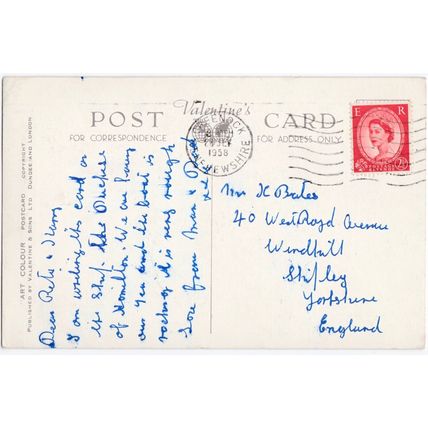 Valentine's
POST CARD
FOR CORRESPONDENCE
FOR ADDRESS ONLY
GREENOCK
1958
RENFREWSHIRE
E R
2½
ART COLOUR POSTCARD COPYRIGHT
PUBLISHED BY VALENTINE & SONS LTD DUNDEE AND LONDON
Dear
I am writing this card on
the Ship the Duchess
of Hamilton. We are having
our Tea and the boat is
rocking it is very rough
Love from Mam & Dad
xx
Mr K Bates
40 West Royd Avenue
Windhill
Shipley
Yorkshire
England